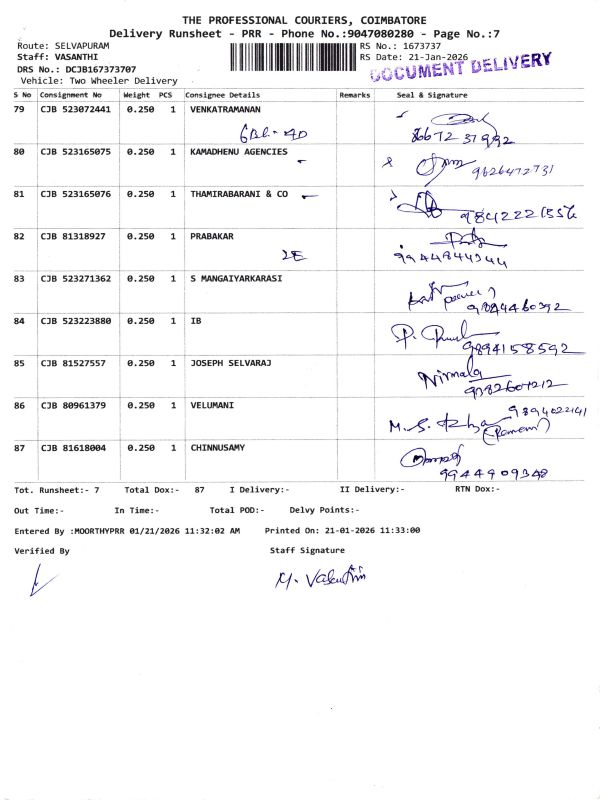 THE PROFESSIONAL COURIERS, COIMBATORE
Delivery Runsheet - PRR - Phone No.:9047080280 - Page No.:7
Route: SELVAPURAM RS No.: 1673737
Staff: VASANTHI RS Date: 21-Jan-2026
DRS No.: DCJB167373707 DOCUMENT DELIVERY
Vehicle: Two Wheeler Delivery
S No Consignment No Weight PCS Consignee Details Remarks Seal & Signature
79 CJB 523072441 0.250 1 VENKATRAMANAN
80 CJB 523165075 0.250 1 KAMADHENU AGENCIES
9626472731
81 CJB 523165076 0.250 1 THAMIRABARANI & CO
82 CJB 81318927 0.250 1 PRABAKAR
83 CJB 523271362 0.250 1 S MANGAIYARKARASI
84 CJB 523223880 0.250 1 IB
9894158592
85 CJB 81527557 0.250 1 JOSEPH SELVARAJ
Nirmala
86 CJB 80961379 0.250 1 VELUMANI
87 CJB 81618004 0.250 1 CHINNUSAMY
9944909348
Tot. Runsheet:- 7 Total Dox:- 87 I Delivery:- II Delivery:- RTN Dox:-
Out Time:- In Time:- Total POD:- Delvy Points:-
Entered By :MOORTHYPRR 01/21/2026 11:32:02 AM Printed On: 21-01-2026 11:33:00
Verified By Staff Signature